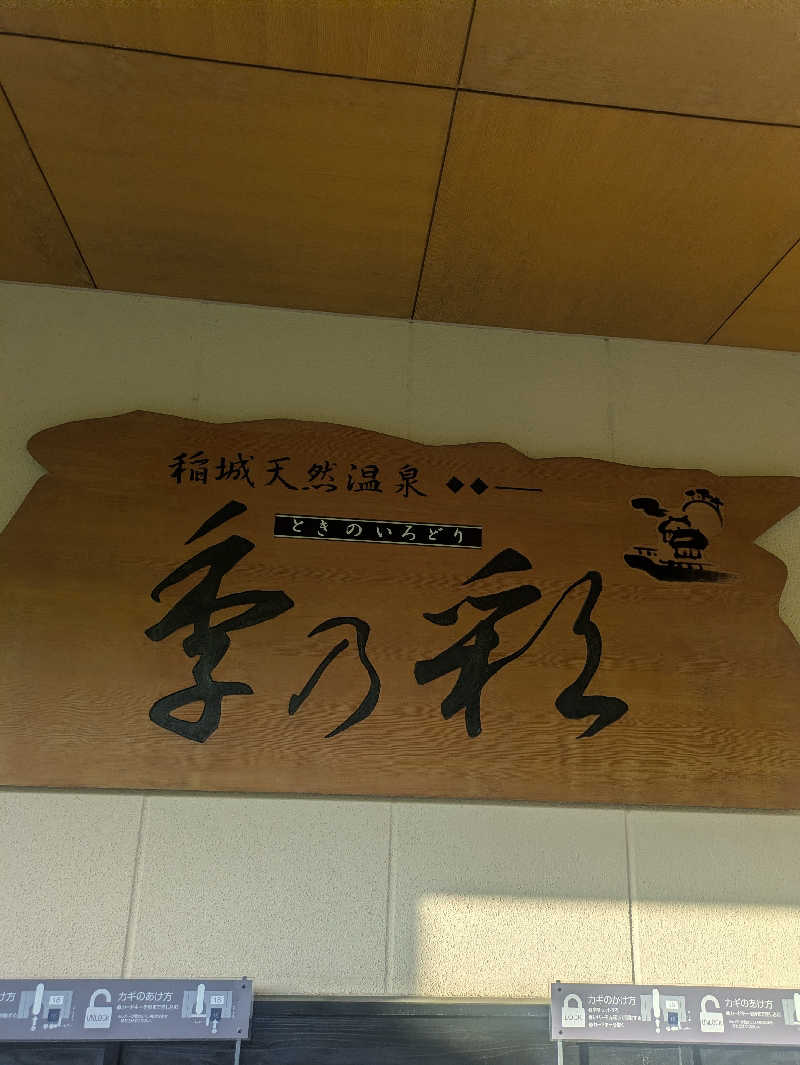 稲城天然温泉
ときのいろどり
季乃彩
け方
18
UNLOCK
カギのあけ方
18
LOCK
カギのかけ方
18
UNLOCK
カギのあけ方